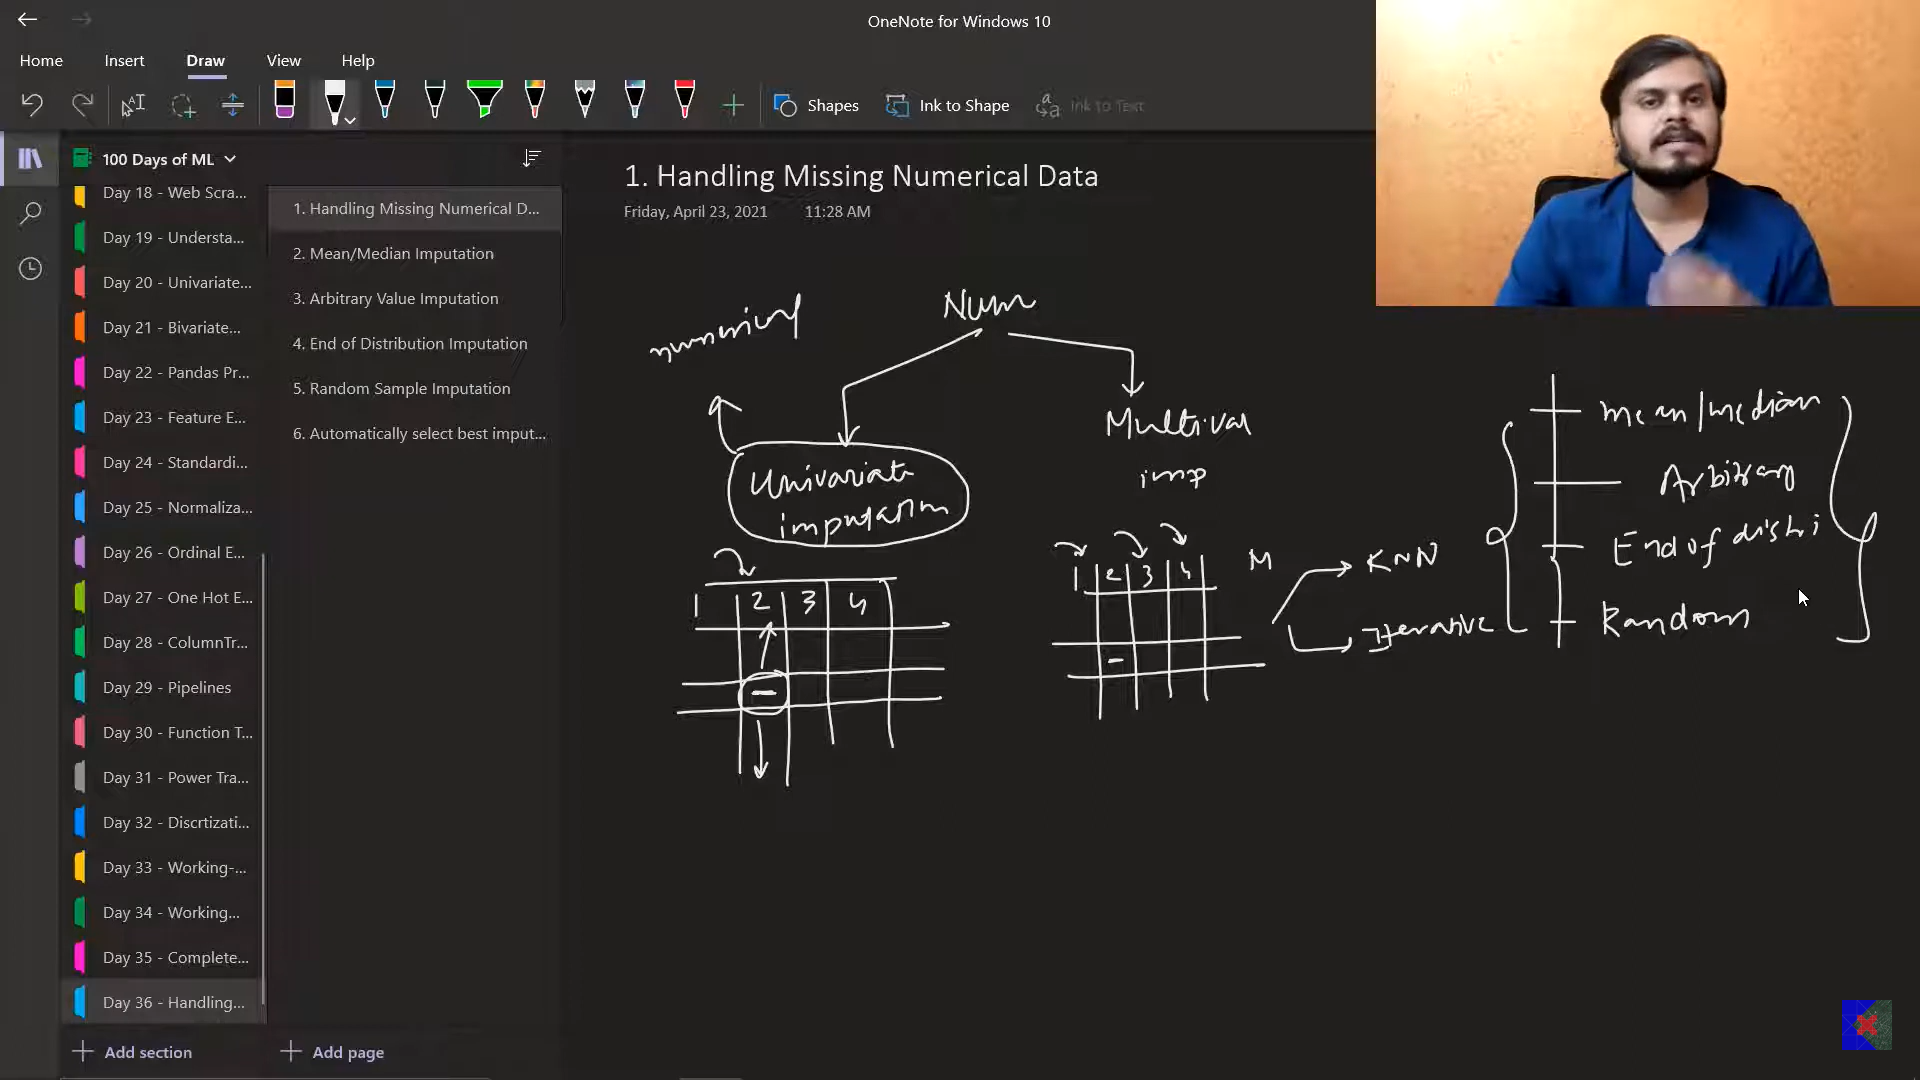 OneNote for Windows 10
Home Insert Draw View Help
Shapes Ink to Shape Ink to Text
100 Days of ML
Day 18 - Web Scra...
Day 19 - Understa...
Day 20 - Univariate...
Day 21 - Bivariate...
Day 22 - Pandas Pr...
Day 23 - Feature E...
Day 24 - Standardi...
Day 25 - Normaliza...
Day 26 - Ordinal E...
Day 27 - One Hot E...
Day 28 - ColumnTr...
Day 29 - Pipelines
Day 30 - Function T...
Day 31 - Power Tra...
Day 32 - Discrtizati...
Day 33 - Working-...
Day 34 - Working...
Day 35 - Complete...
Day 36 - Handling...
Add section
1. Handling Missing Numerical D...
2. Mean/Median Imputation
3. Arbitrary Value Imputation
4. End of Distribution Imputation
5. Random Sample Imputation
6. Automatically select best imput...
Add page
1. Handling Missing Numerical Data
Friday, April 23, 2021 11:28 AM
numerical
Num
Univariate
imputation
1 2 3 4
Multival
imp
1 2 3 4
M
KNN
Iterative
mean/median
Arbitrary
End of distri
Random